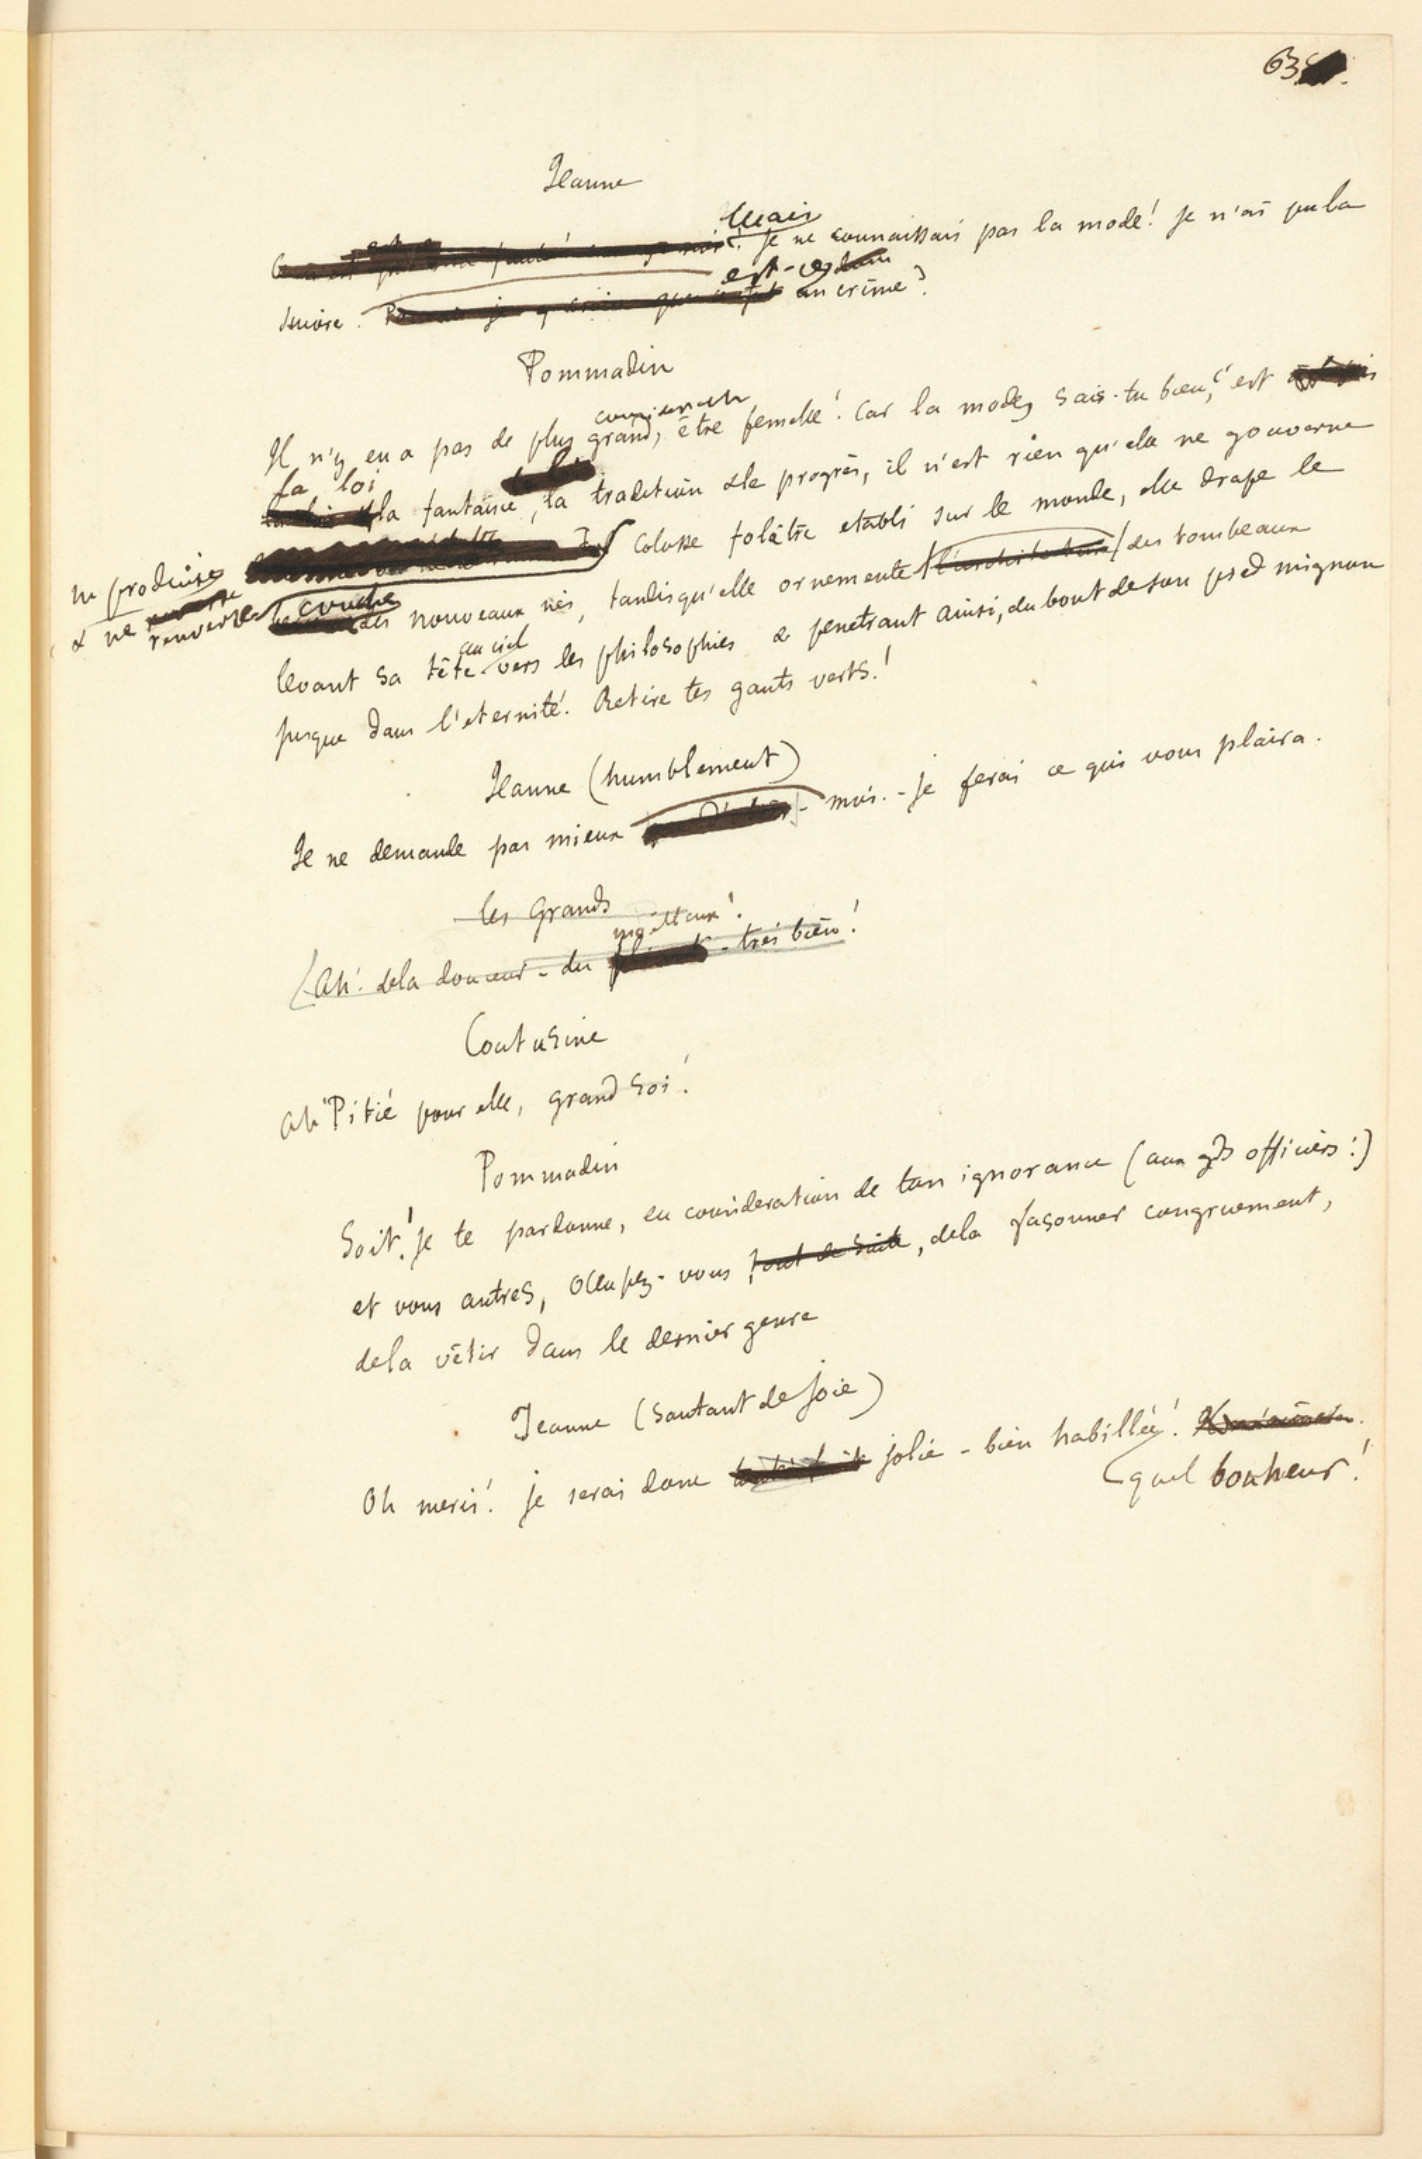 63
Jeanne
Mais
Je ne connaissais pas la mode! je n'ai pu la
est-ce donc
suivre. un crime?
Pommadin
Il n'y en a pas de plus grand, être femelle! Car la mode, sais-tu bien, c'est
la loi
la fantaisie, la tradition & le progrès, il n'est rien qu'elle ne gouverne
ne produise Colosse folâtre établi sur le monde, elle drape le
& ne renverse
couche des nouveaux nés, tandis qu'elle ornemente l'architecture des tombeaux
au ciel
levant sa tête vers les philosophies & penetrant ainsi, du bout de son pied mignon
jusque dans l'eternité. Retire tes gants verts!
Jeanne (humblement)
Je ne demande pas mieux - moi. - je ferai ce qui vous plaira.
les Grands
moëlleux!
Ah! de la douceur - du - très bien!
Couturine
Ah Pitié pour elle, grand roi!
Pommadin
Soit! je te pardonne, en consideration de ton ignorance (aux gds officiers:)
et vous autres, occupez-vous tout de suite, de la façonner congruement,
de la vêtir dans le dernier genre
Jeanne (sautant de joie)
Oh merci! je serai donc jolie - bien habillée!
quel bonheur!